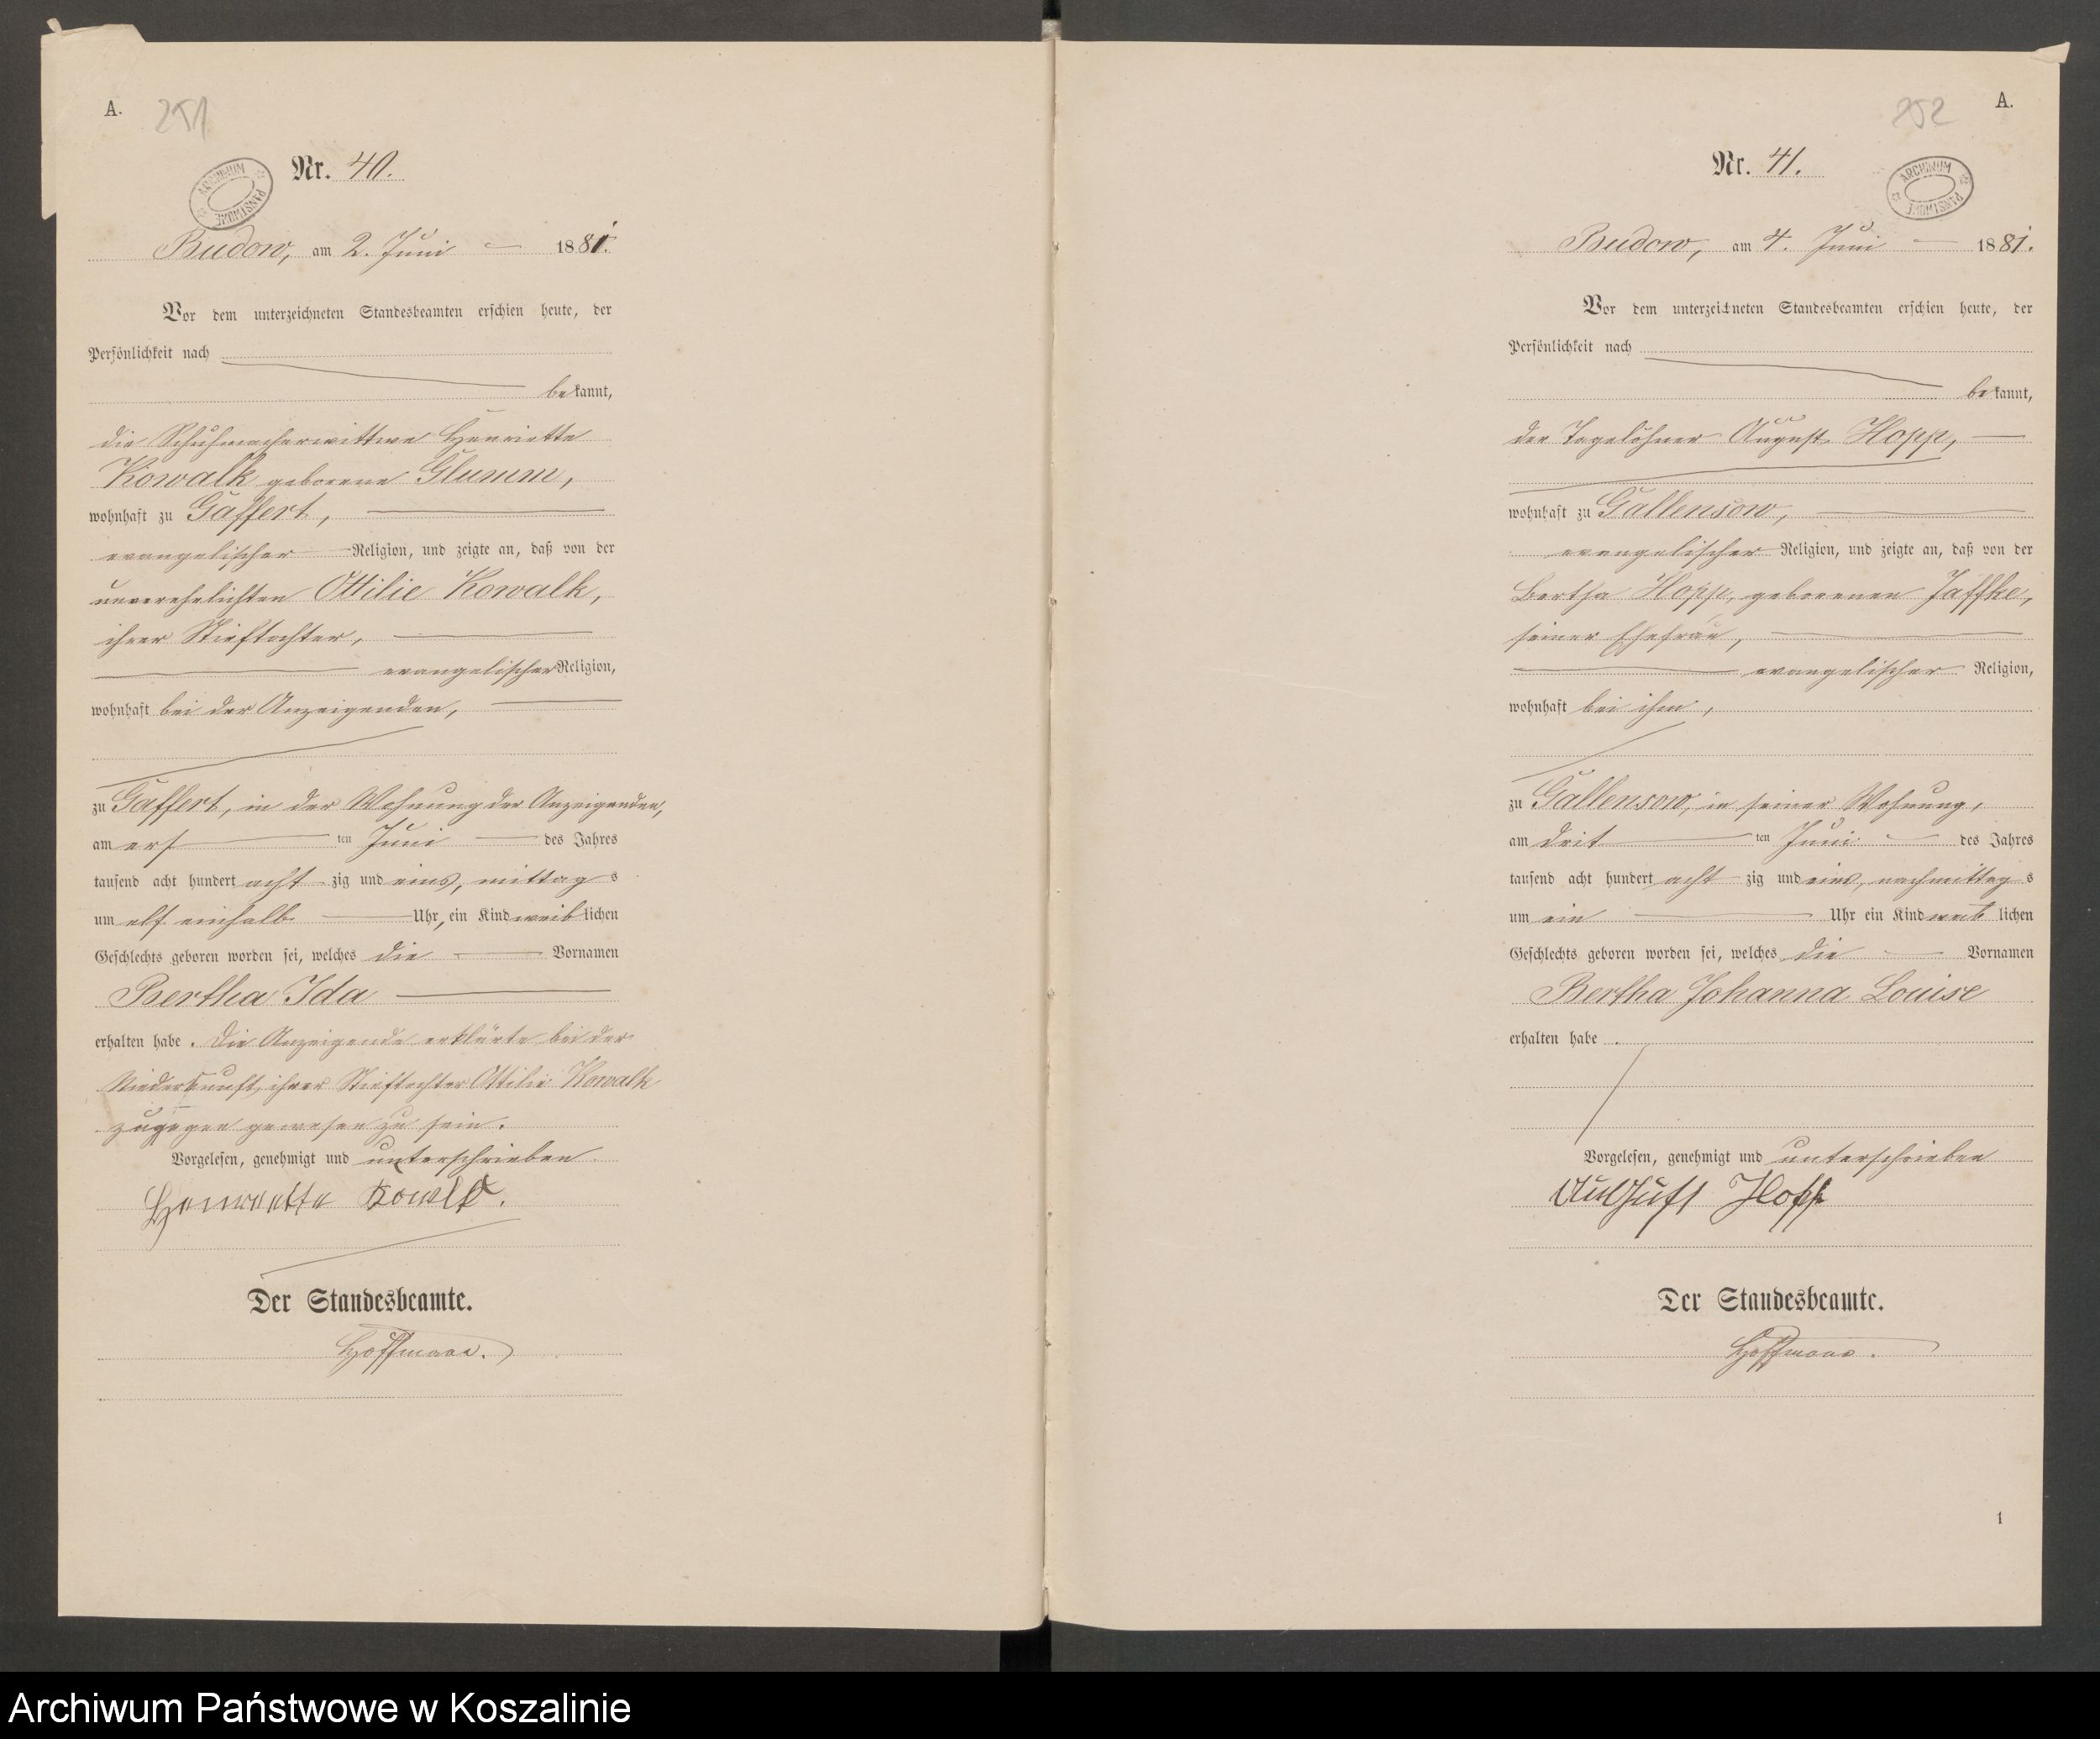 A.
251
Nr. 40.
ARCHIWUM PAŃSTWOWE
Budow, am 2. Juni 1881.
Vor dem unterzeichneten Standesbeamten erschien heute, der
Persönlichkeit nach
bekannt,
die Schuhmacherwittwe Henriette
Kowalk geborene Glumm,
wohnhaft zu Gaffert,
evangelischer Religion, und zeigte an, daß von der
unverehelichten Ottilie Kowalk,
ihrer Stieftochter,
evangelischer Religion,
wohnhaft bei der Anzeigenden,
zu Gaffert, in der Wohnung der Anzeigenden,
am ersten Juni des Jahres
tausend acht hundert achtzig und eins, mittags
um elf einhalb Uhr, ein Kind weiblichen
Geschlechts geboren worden sei, welches die Vornamen
Bertha Ida
erhalten habe. Die Anzeigende erklärte bei der
Niederkunft ihrer Stieftochter Ottilie Kowalk
zugegen gewesen zu sein.
Vorgelesen, genehmigt und unterschrieben
Henriette Kowalk.
Der Standesbeamte.
Hoffmann.
252
A.
Nr. 41.
ARCHIWUM PAŃSTWOWE
Budow, am 4. Juni 1881.
Vor dem unterzeichneten Standesbeamten erschien heute, der
Persönlichkeit nach
bekannt,
der Tagelöhner August Hopp,
wohnhaft zu Gallensow,
evangelischer Religion, und zeigte an, daß von der
Bertha Hopp, geborenen Jaffke,
seiner Ehefrau,
evangelischer Religion,
wohnhaft bei ihm,
zu Gallensow, in seiner Wohnung,
am dritten Juni des Jahres
tausend acht hundert achtzig und eins, nachmittags
um ein Uhr ein Kind weiblichen
Geschlechts geboren worden sei, welches die Vornamen
Bertha Johanna Louise
erhalten habe.
Vorgelesen, genehmigt und unterschrieben
August Hopp
Der Standesbeamte.
Hoffmann.
1
Archiwum Państwowe w Koszalinie